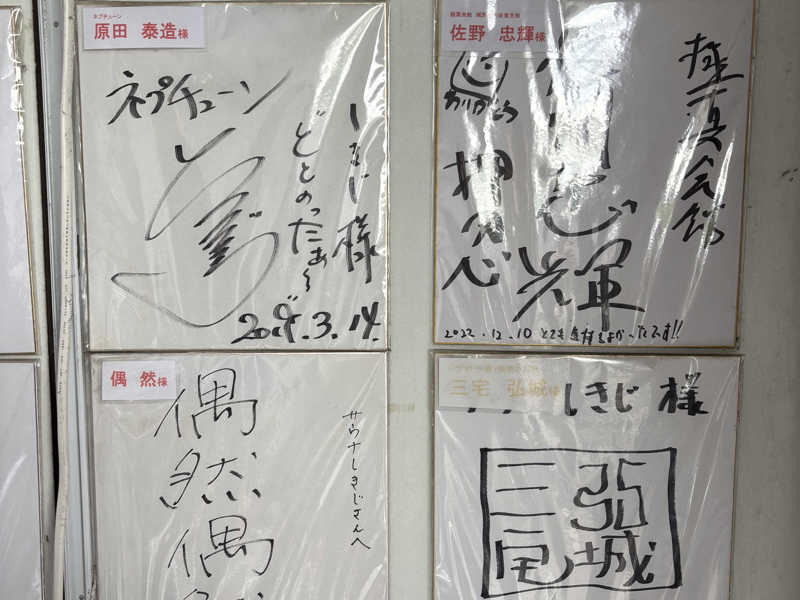 ネプチューン
原田 泰造様
ネプチューン
しきじ様
ととのったぁ〜
3.14.
佐野 忠輝様
極真会館
押忍
輝
2022.12.10
偶 然様
偶然偶
サウナしきじさんへ
三宅 弘城様
しきじ 様
三宅
弘城